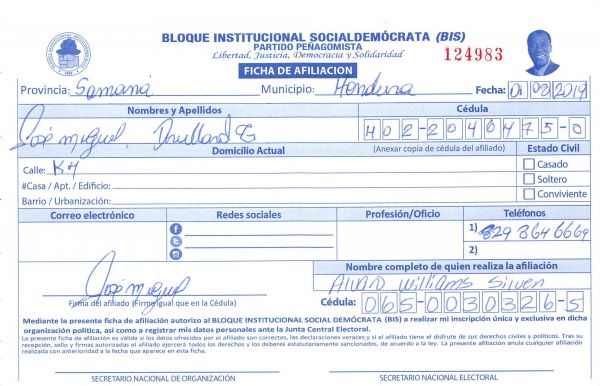 BLOQUE INSTITUCIONAL SOCIALDEMÓCRATA (BIS)
PARTIDO PEÑAGOMISTA
Libertad, Justicia, Democracia y Solidaridad
124983
FICHA DE AFILIACION
Provincia: Samaná Municipio: Hondura Fecha: 01 02 2019
Nombres y Apellidos Cédula
José miguel 402-2040475-0
Domicilio Actual (Anexar copia de cédula del afiliado) Estado Civil
Calle: K4 Casado
#Casa / Apt. / Edificio: Soltero
Barrio / Urbanización: Conviviente
Correo electrónico Redes sociales Profesión/Oficio Teléfonos
1) 829 864 6669
2)
Nombre completo de quien realiza la afiliación
José miguel Alvaro Williams
Firma del afiliado (Firme igual que en la Cédula) Cédula: 065-0030326-5
Mediante la presente ficha de afiliación autorizo al BLOQUE INSTITUCIONAL SOCIAL DEMÓCRATA (BIS) a realizar mi inscripción única y exclusiva en dicha
organización política, así como a registrar mis datos personales ante la Junta Central Electoral.
La presente ficha de afiliación es válida si los datos ofrecidos por el afiliado son correctos, las declaraciones veraces y si el afiliado tiene el disfrute de sus derechos civiles y políticos. Tras su
recepción, sello y firmas autorizadas el afiliado ejercerá todos los derechos y los deberes estatutariamente sancionados, de acuerdo a la ley. La presente afiliación anula cualquier afiliación
realizada con anterioridad a la fecha que aparece en esta ficha.
SECRETARIO NACIONAL DE ORGANIZACIÓN SECRETARIO NACIONAL ELECTORAL